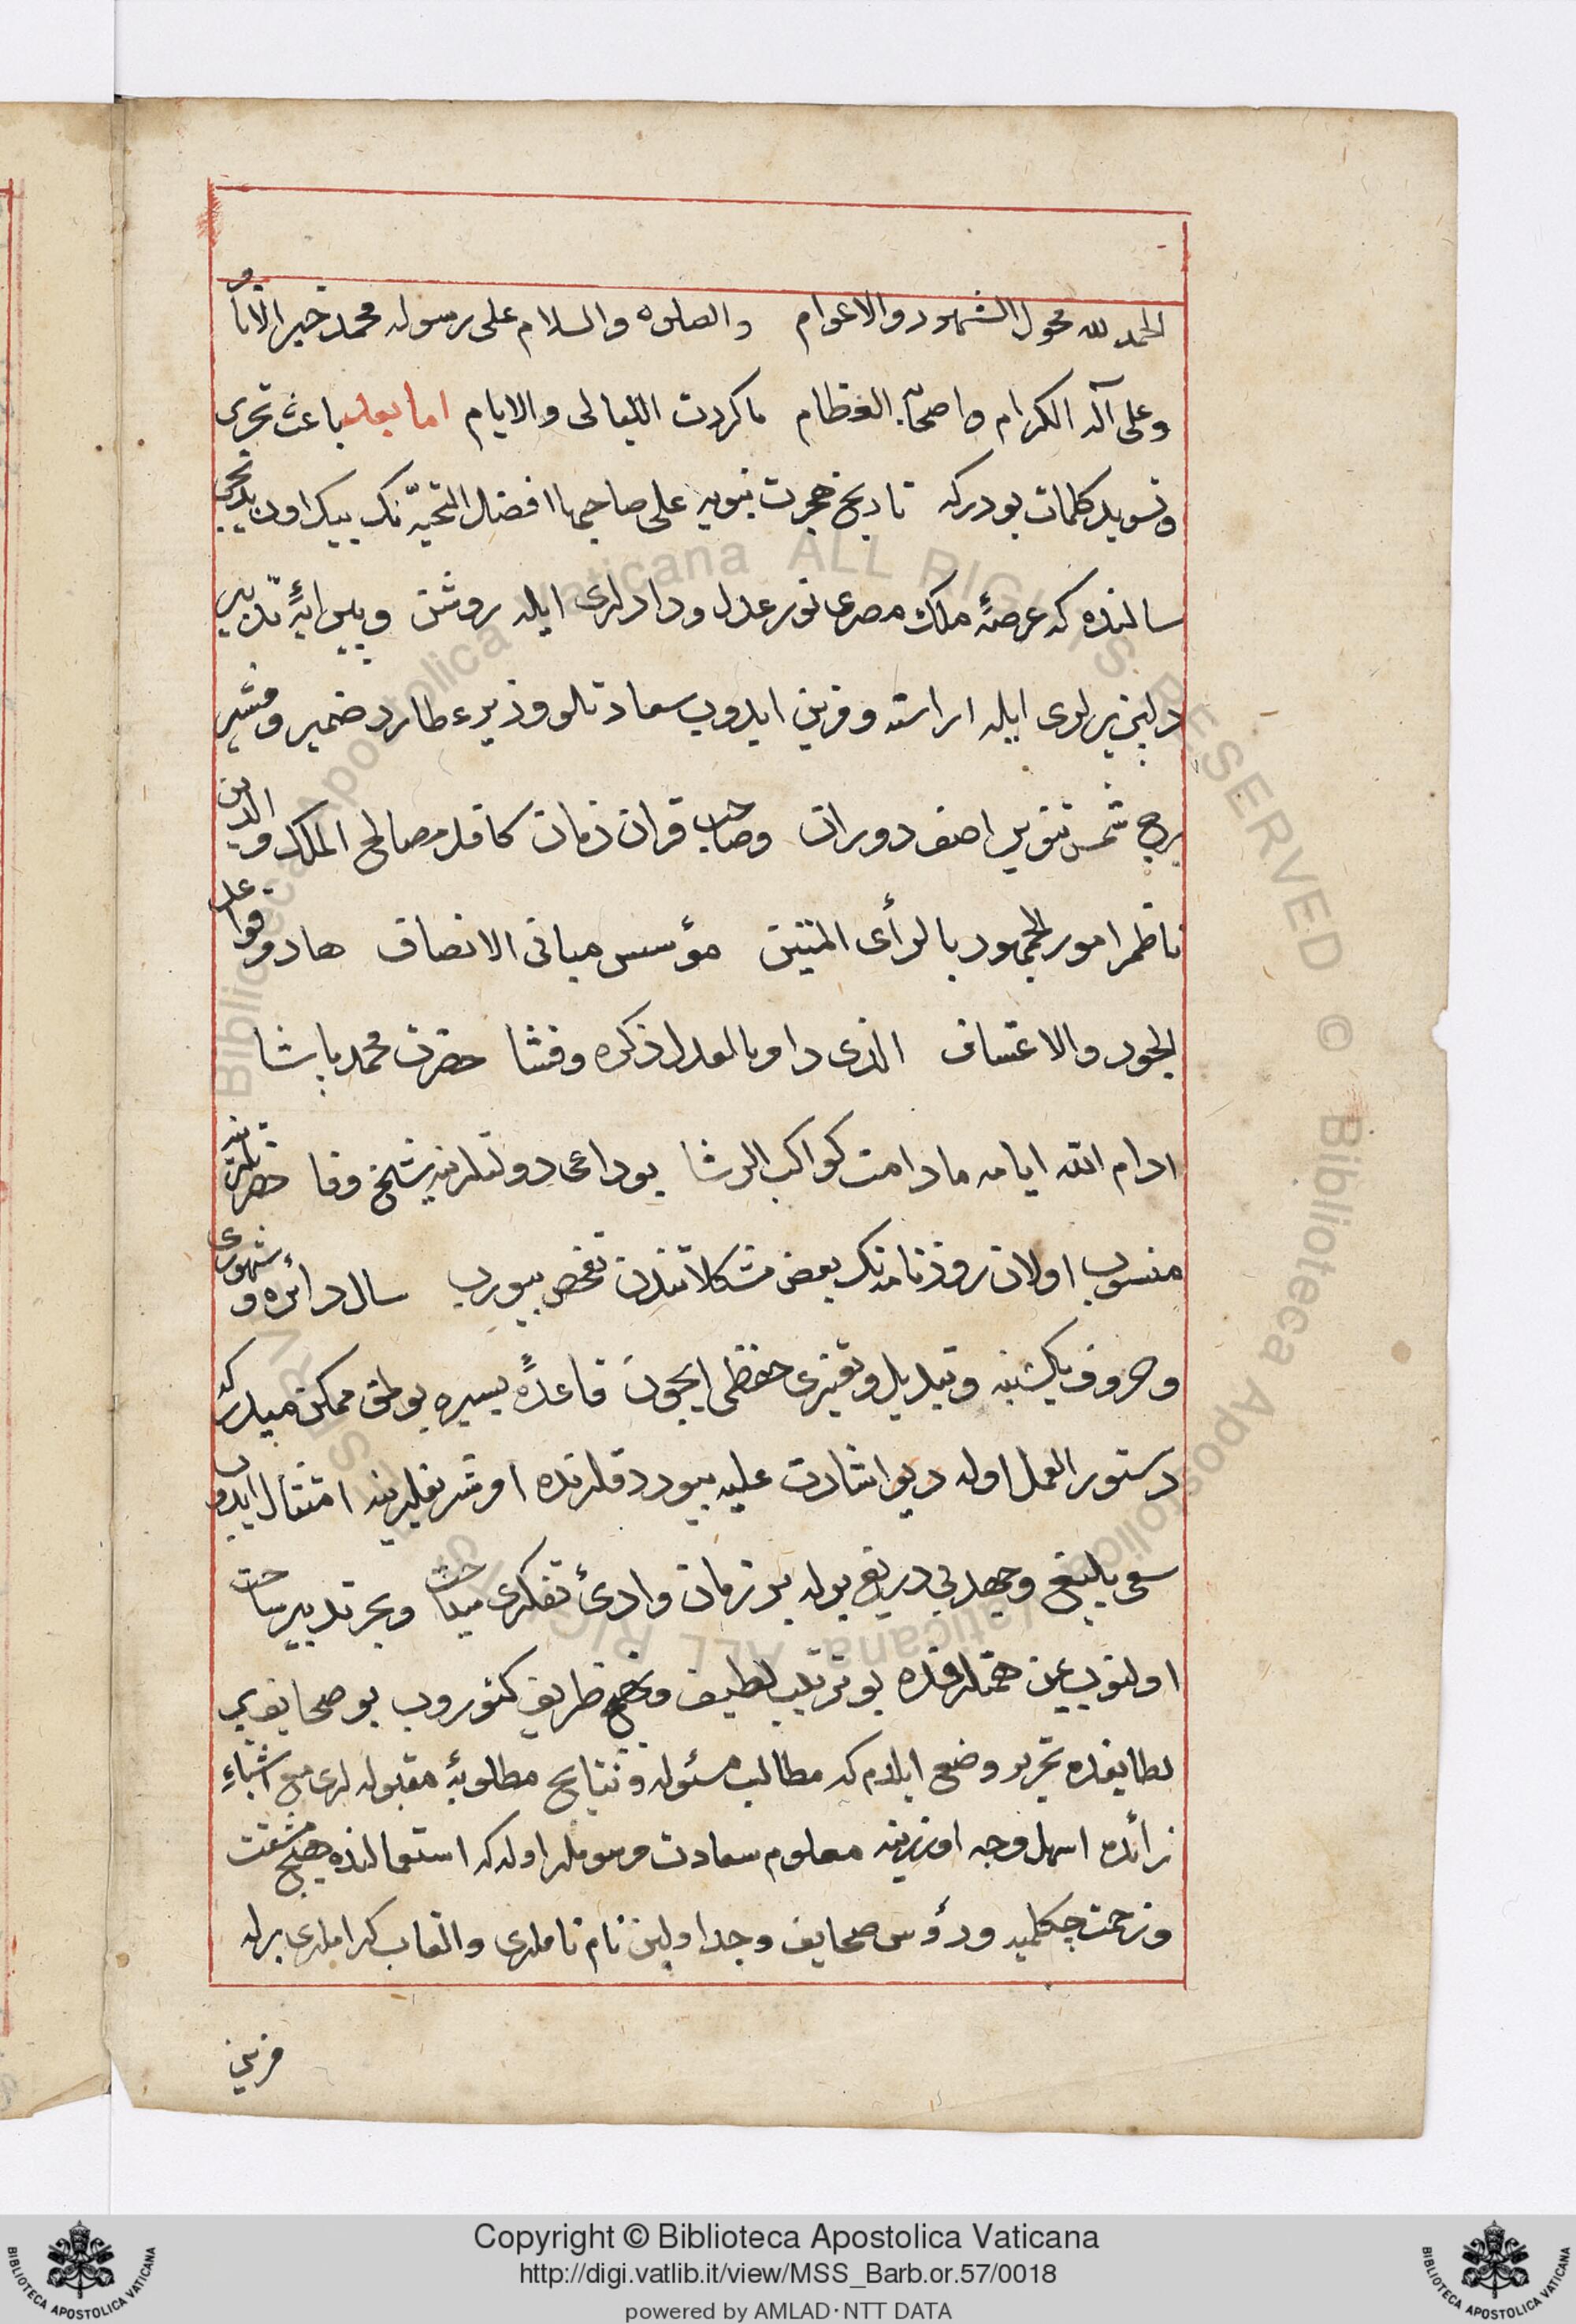 الحمد لله محول الشهور والاعوام والصلوه والسلام على رسوله محمد خير الانام
وعلى آله الكرام واصحابه العظام ما كردت الليالى والايام اما بعد باعث تحرى
وتسويد كلمات بودركه تاريخ هجرت نبويه على صاحبها افضل التحيه نك بيك اون
سالنده كه عرصهٔ ملك مصرى نور عدل ودادلرى ايله روشن وپيرايهٔ تدبير
دلپذيرلرى ايله اراسته ومزين ايدوب سعادتلو وزير عطارد ضمير ومشير
برج شمس تنوير اصف دوران وصاحب قران زمان كافل مصالح الملك والدين
ناظر امور الجمهور بالرأى المتين مؤسس مبانى الانصاف هادم قواعد
الجور والاعتساف الذى دام بالعدل ذكره وفشا حضرت محمد پاشا
ادام الله ايامه مادامت كواكب الرشا بو داعى دولتلرينه شيخ وفا حضرتلرينه
منسوب اولان روزنامه نك بعض مشكلاتندن تفحص بيورب سال دائره وشهورى
وحروف يكشنبه وتبديل وتغيرى حفظى ايچون قاعدهٔ يسيره بولمق ممكن ميدركه
دستور العمل اوله ديو اشارت عليه بيوردقلرنده امر شريفلرينه امتثال ايدوب
سعى بليغ وجهد بى دريغ برله بر زمان وادئ تفكرى مساحت وبحر تدبيره سباحت
اولنوب يمن همتلرنده بو ترتيب لطيف ونهج ظريف كتوروب بو صحايف پر
لطايفده تحرير وضع ايلدم كه مطالب مسئوله ونتايج مطلوبهٔ مقبوله لرى مع اشياءِ
زائده اسهل وجه اوزرينه معلوم سعادت مرسوملر اوله كه استعمالنده هيچ مشقت
وزحمت چكلميه ورؤس صحايف وجداولين نام ناملرى والقاب كراملرى برله
مزين
Copyright © Biblioteca Apostolica Vaticana
http://digi.vatlib.it/view/MSS_Barb.or.57/0018
powered by AMLAD·NTT DATA